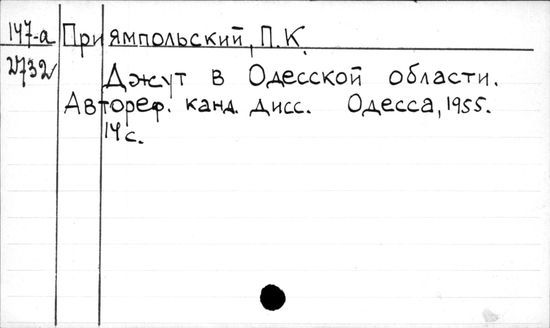 147-а Приямпольский, П.К.
2732 Джут в Одесской области.
Автореф. канд. дисс. Одесса, 1955.
14 с.